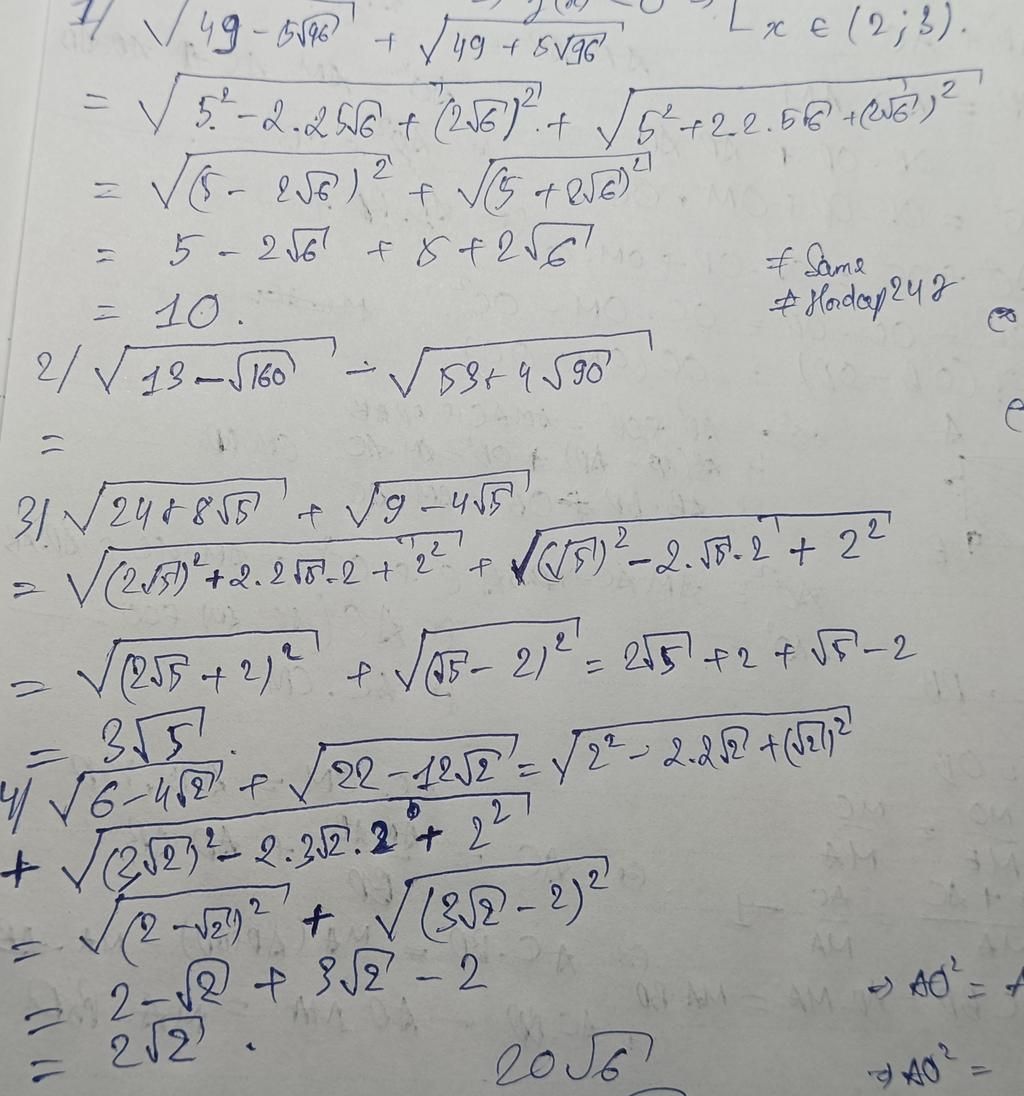 1/ √(49 - 5√96) + √(49 + 5√96)
x ∈ (2; 3).
= √(5² - 2.25√6 + (2√6)²) + √(5² + 2.2.5√6 + (2√6)²)
= √(5 - 2√6)² + √(5 + 2√6)²
= 5 - 2√6 + 5 + 2√6
= 10.
# Same
2/ √(13 - √160) - √(53 + 4√90)
=
3/ √(24 + 8√5) + √(9 - 4√5)
= √((2√5)² + 2.2√5.2 + 2²) + √((√5)² - 2.√5.2 + 2²)
= √(2√5 + 2)² + √(√5 - 2)² = 2√5 + 2 + √5 - 2
= 3√5.
4/ √(6 - 4√2) + √(22 - 12√2) = √(2² - 2.2√2 + (√2)²)
+ √((3√2)² - 2.3√2.2 + 2²)
= √(2 - √2)² + √(3√2 - 2)²
= 2 - √2 + 3√2 - 2
⇒ AO² =
= 2√2.
20√6
⇒ AO² =